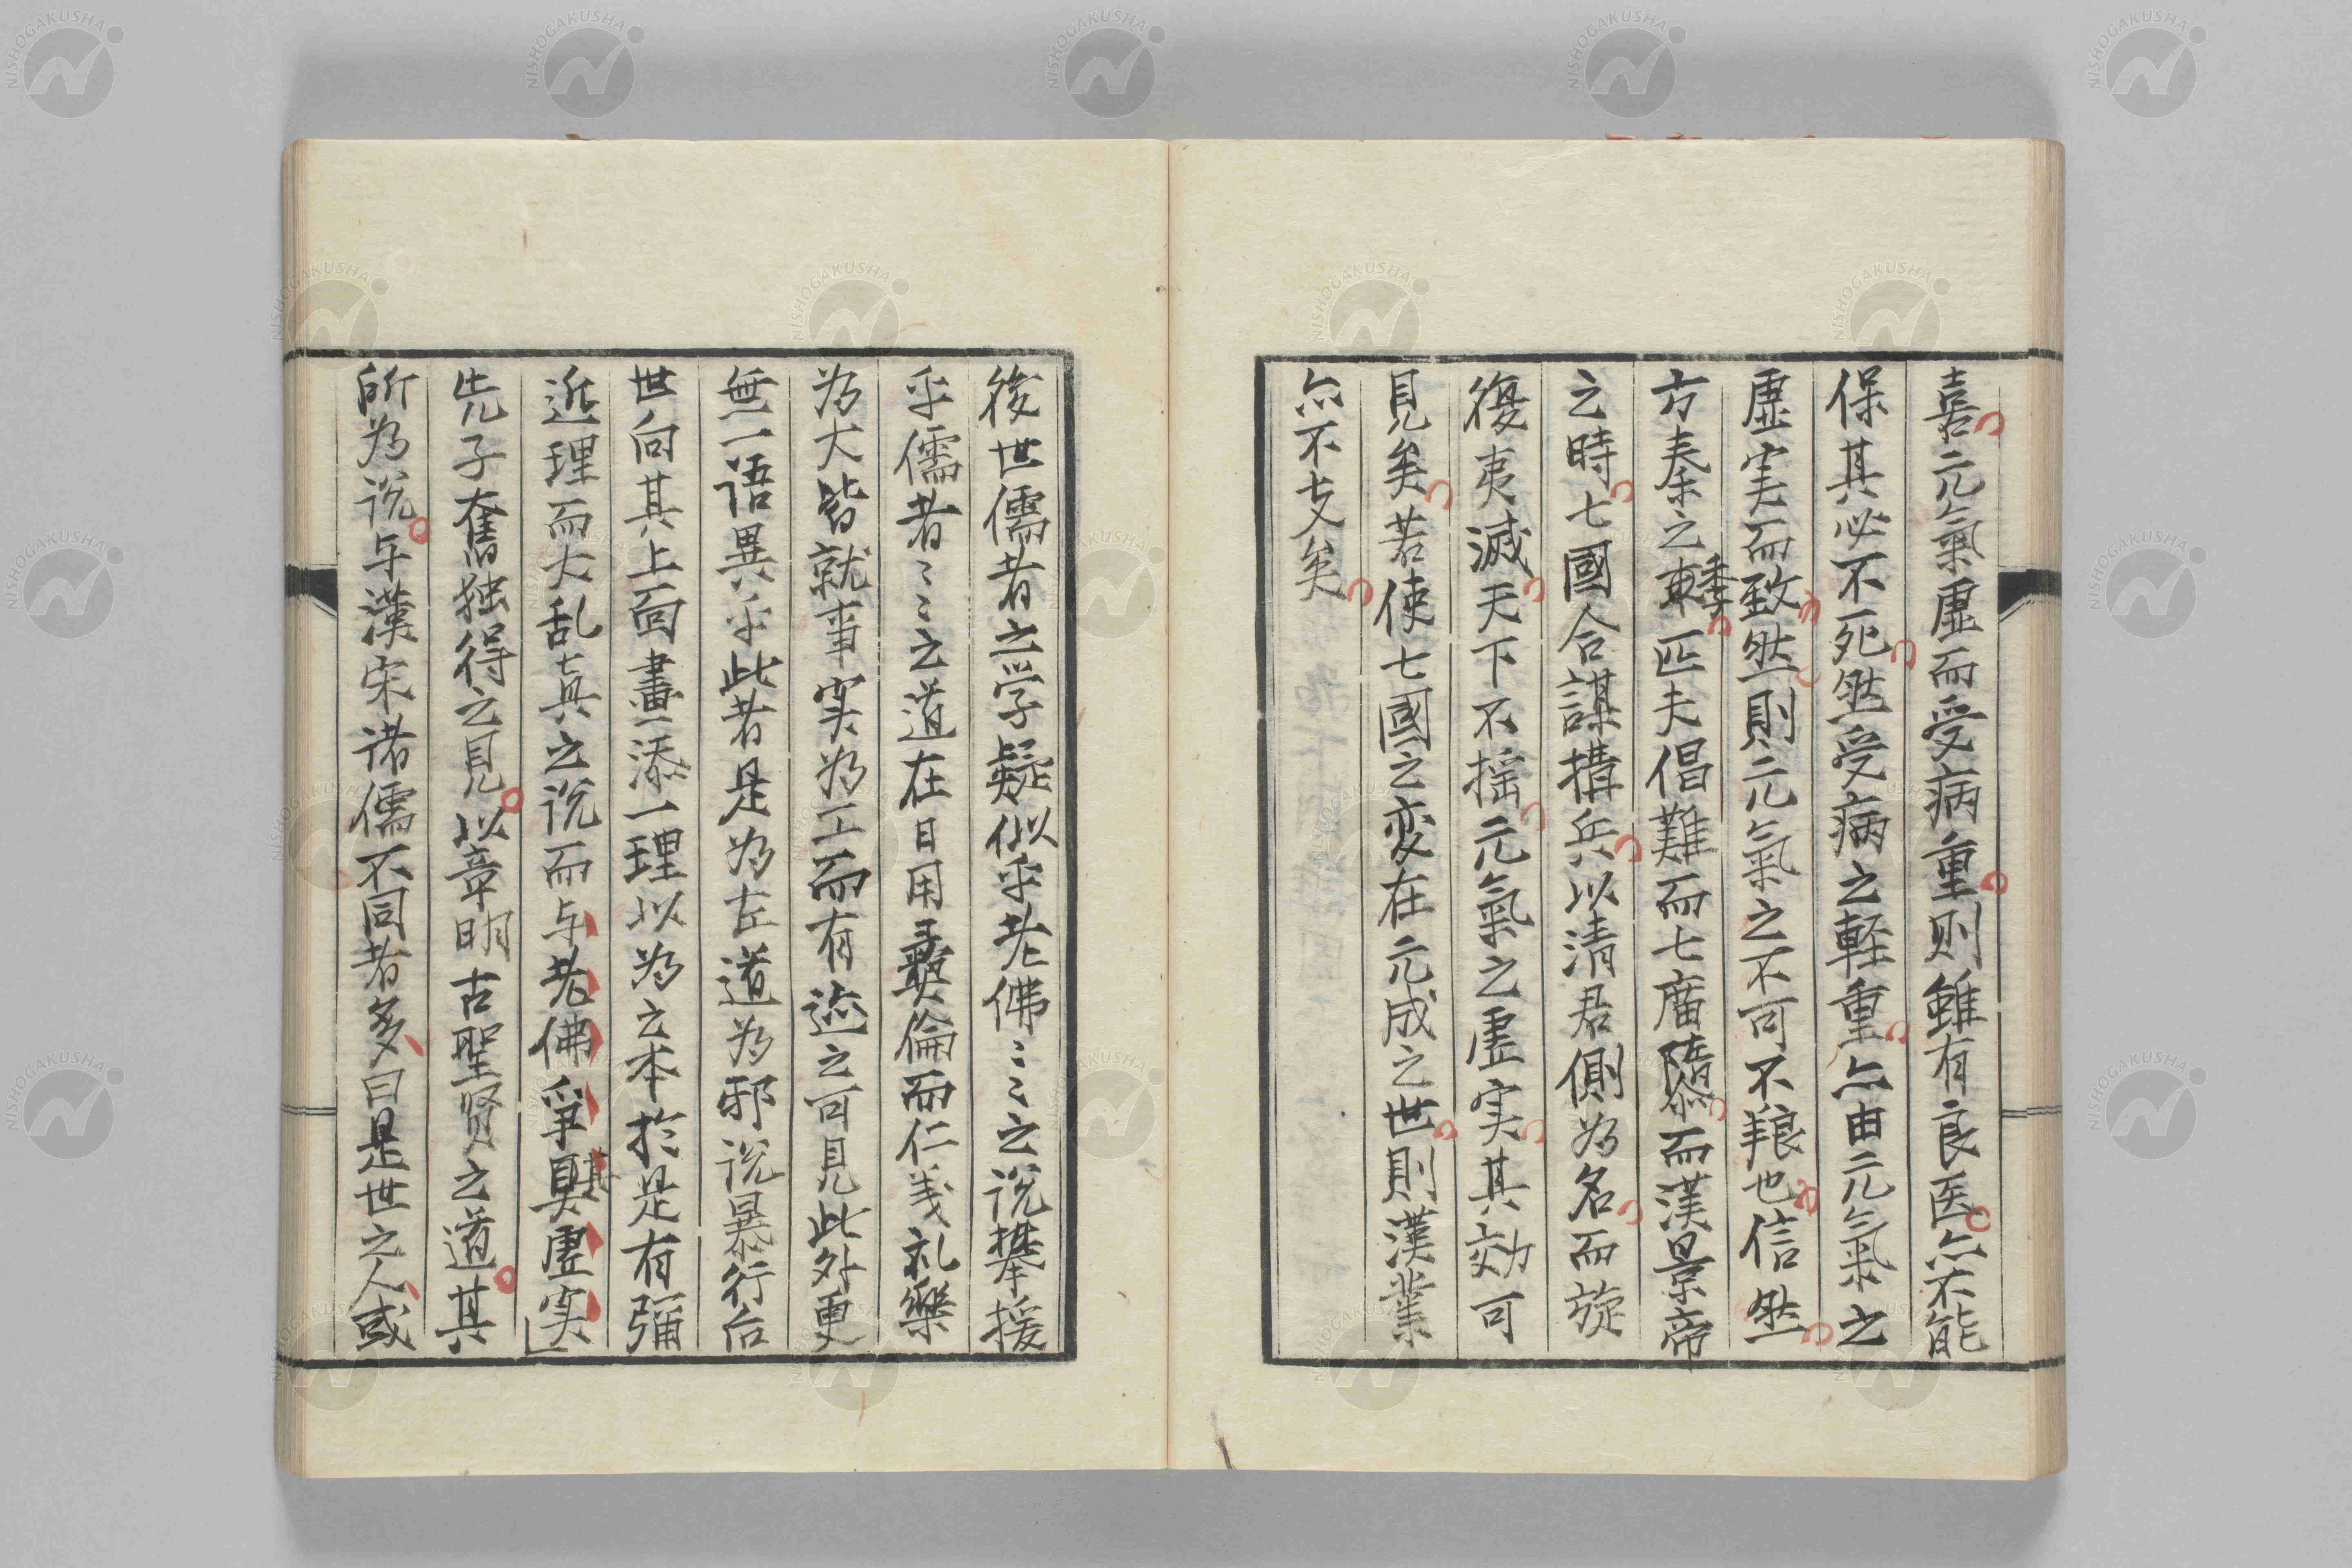 喜元氣虛而受病重則雖有良医亦不能
保其必不死然受病之軽重亦由元氣之
虛実而致然則元氣之不可不粮也信然
方秦之季匹夫倡難而七廣隋而漢景帝
之時七國合謀搆兵以清君側為名而旋
復夷滅天下不揺元氣之虛実其効可
見矣若使七國之変在元成之世則漢業
亦不支矣
後世儒者之学疑似乎老佛〻〻之説攀援
乎儒者〻〻之道在日用彝倫而仁義礼樂
為大皆就事実為工而有迹之可見此外更
無一語異乎此者是為左道為邪説暴行后
世向其上面畫添一理以為之本於是有彌
近理而大乱真之説而与老佛爭其虛実
先子奮然独得之見以章明古聖賢之道其
所為説与漢宋諸儒不同者多曰是世之人或
NISHOGAKUSHA